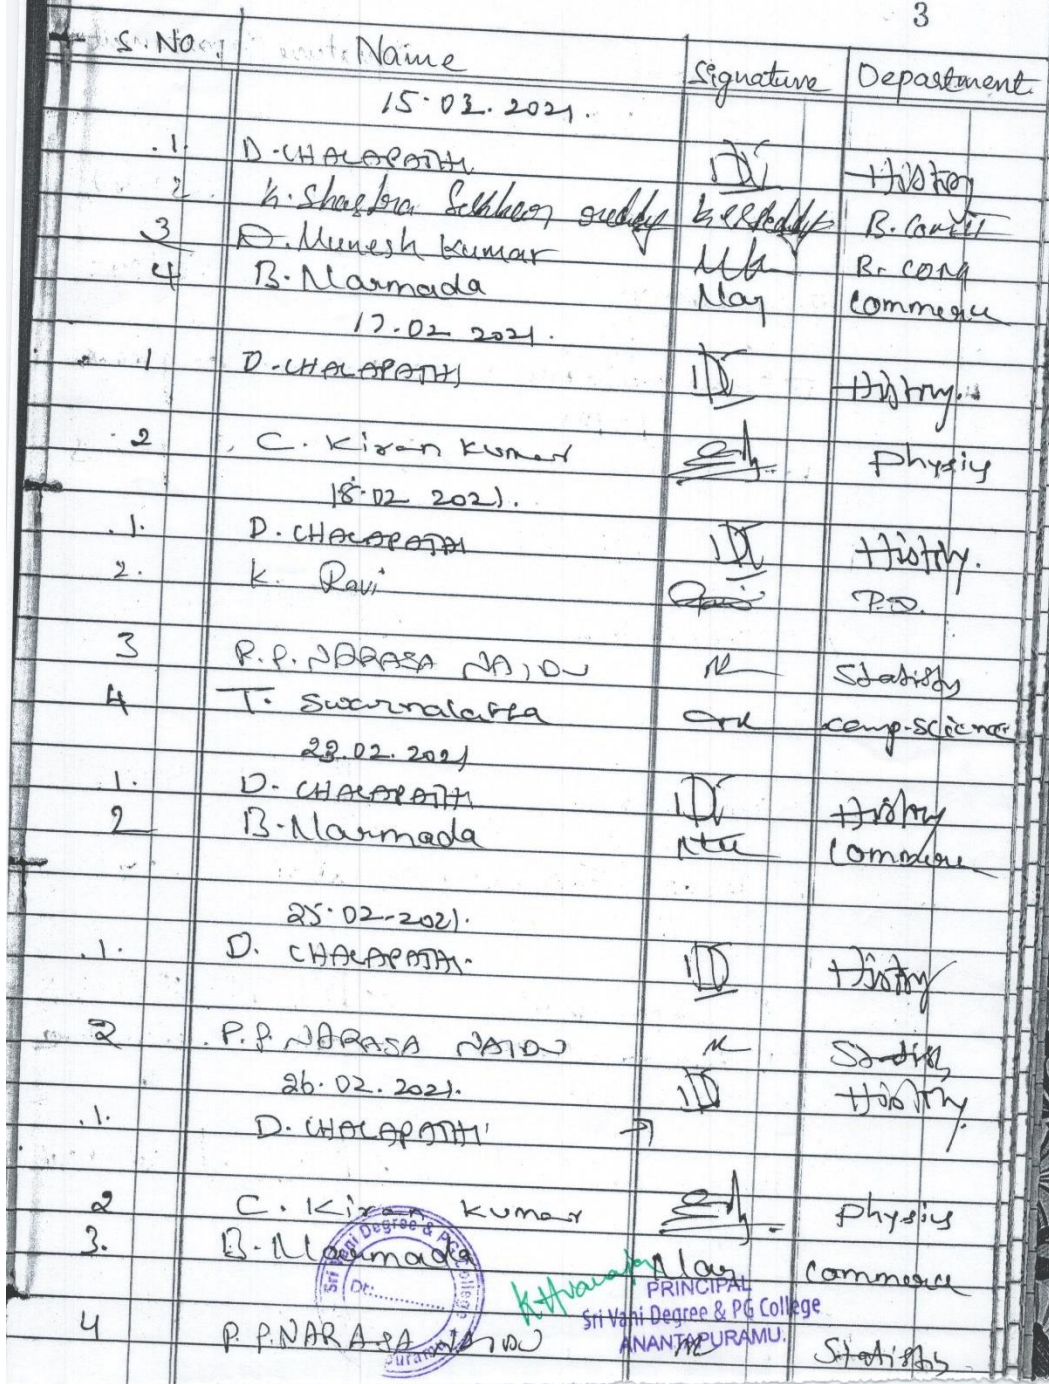 3
S. No. Name Signature Department
15.02.2021.
1. D. CHALAPATHI History
2. K. Shashra Sekhar reddy K S Reddy
3 D. Munesh Kumar B. com
4 B. Narmada Nar Commerce
17.02 2021.
1 D. CHALAPATHI History.
2 C. Kiran Kumar Physics
18.02 2021.
1. D. CHALAPATHI History.
2. K. Ravi Ravi P.D.
3 P.P. NARASA NAIDU Statistics
4 T. Swarnalatha comp. science
23.02.2021
1. D. CHALAPATHI History
2 B. Narmada Commerce
25.02-2021.
1. D. CHALAPATHI. History
2 P.P. NARASA NAIDU Statistics
26.02.2021. History.
1. D. CHALAPATHI
2 C. Kiran Kumar Physics
3. B. Narmada Nar Commerce
4 P. P. NARASA NAIDU Statistics.
Sri Vani Degree & PG College
Dt:..............
PRINCIPAL
Sri Vani Degree & PG College
ANANTAPURAMU.